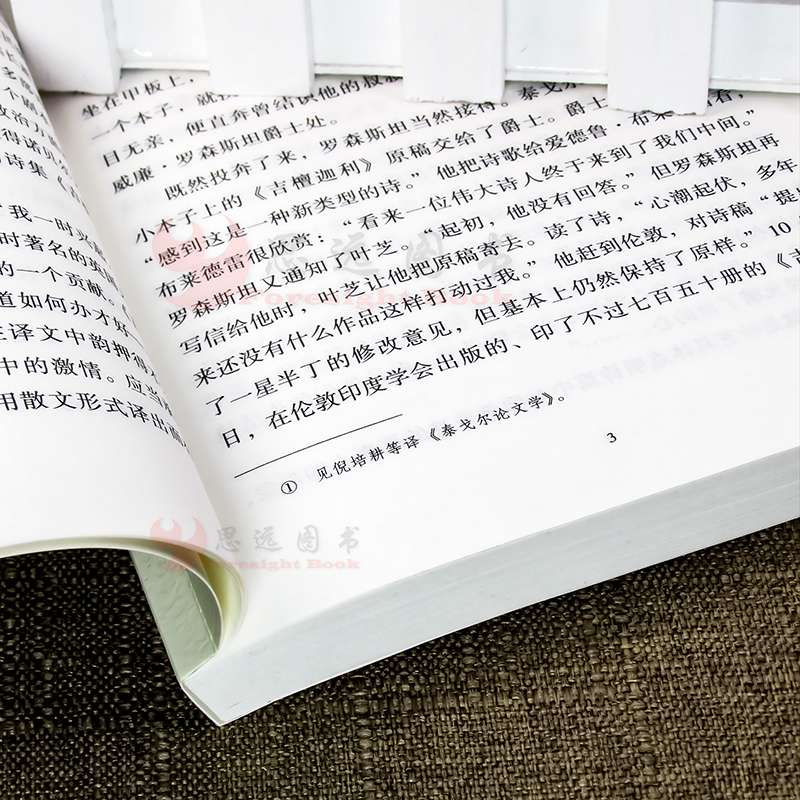 政治力
得诺贝
诗集《
“我一时
时著名的英
的一个贡献。
道如何办才好
在译文中韵押得
中的激情。应当
用散文形式译出而
坐在甲板上，
一个本子，就
目无亲，便直奔曾结识他的
威廉·罗森斯坦爵士处。
既然投奔了来，罗森斯坦当然接待。泰戈尔
小本子上的《吉檀迦利》原稿交给了爵士。爵士
“感到这是一种新类型的诗。”他把诗歌给爱德鲁·布莱 看，
布莱德雷很欣赏：“看来一位伟大诗人终于来到了我们中间。”
罗森斯坦又通知了叶芝。“起初，他没有回答。”但罗森斯坦再
写信给他时，叶芝让他把原稿寄去。读了诗，“心潮起伏，多年
来还没有什么作品这样打动过我。”他赶到伦敦，对诗稿“提
了一星半丁的修改意见，但基本上仍然保持了原样。”10
日，在伦敦印度学会出版的、印了不过七百五十册的《吉
① 见倪培耕等译《泰戈尔论文学》。
3
思远图书
Foresight Book
思远图书
Foresight Book